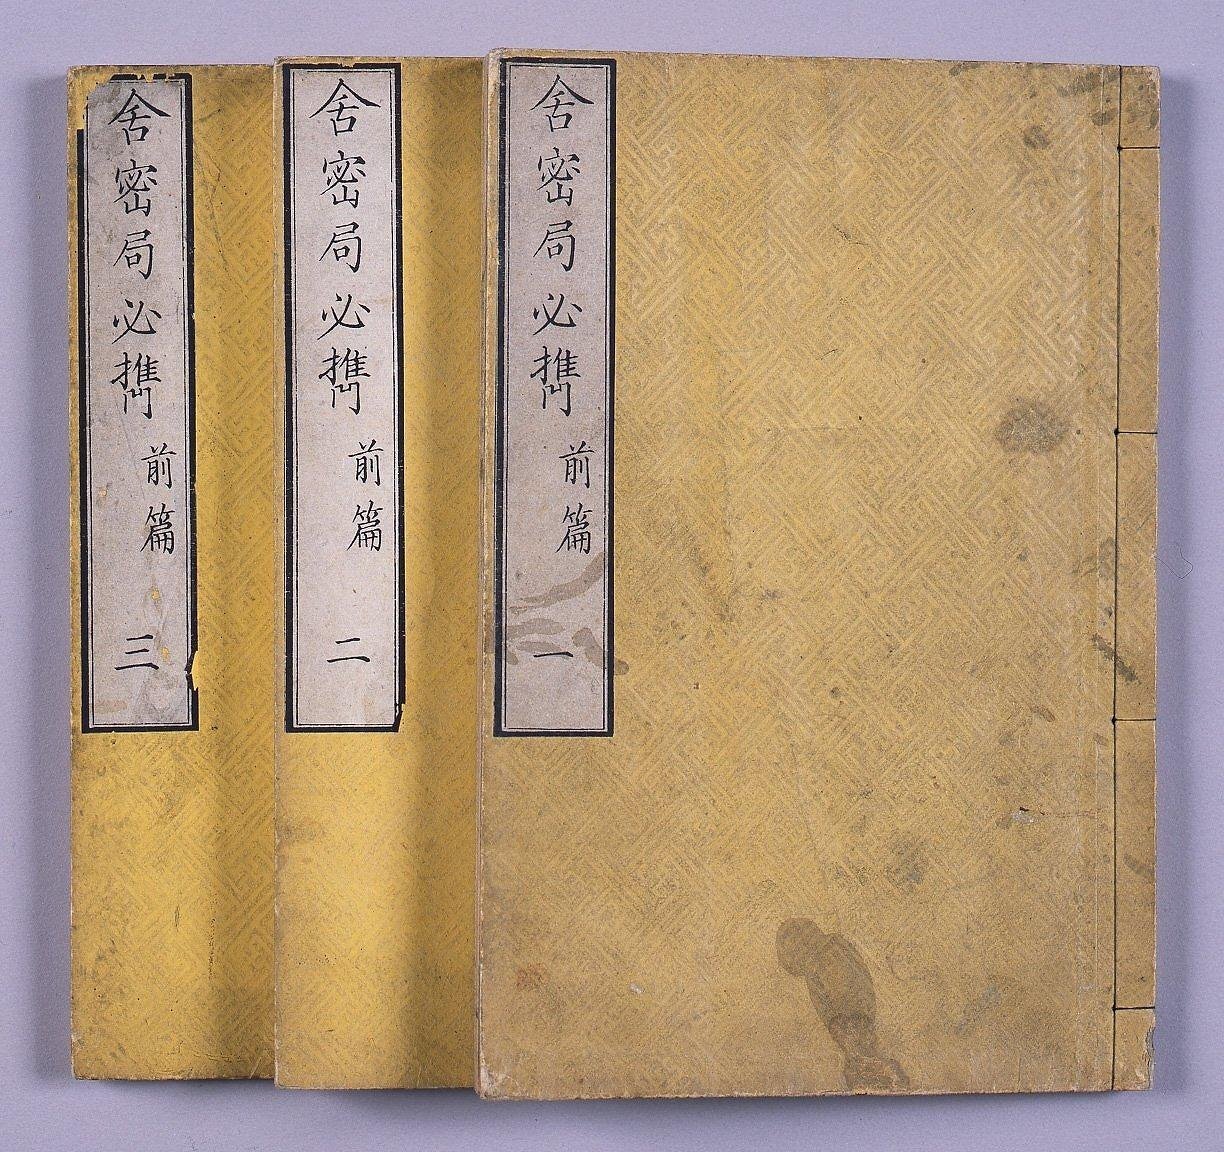 舎密局必携 前篇 一
舎密局必携 前篇 二
舎密局必携 前篇 三